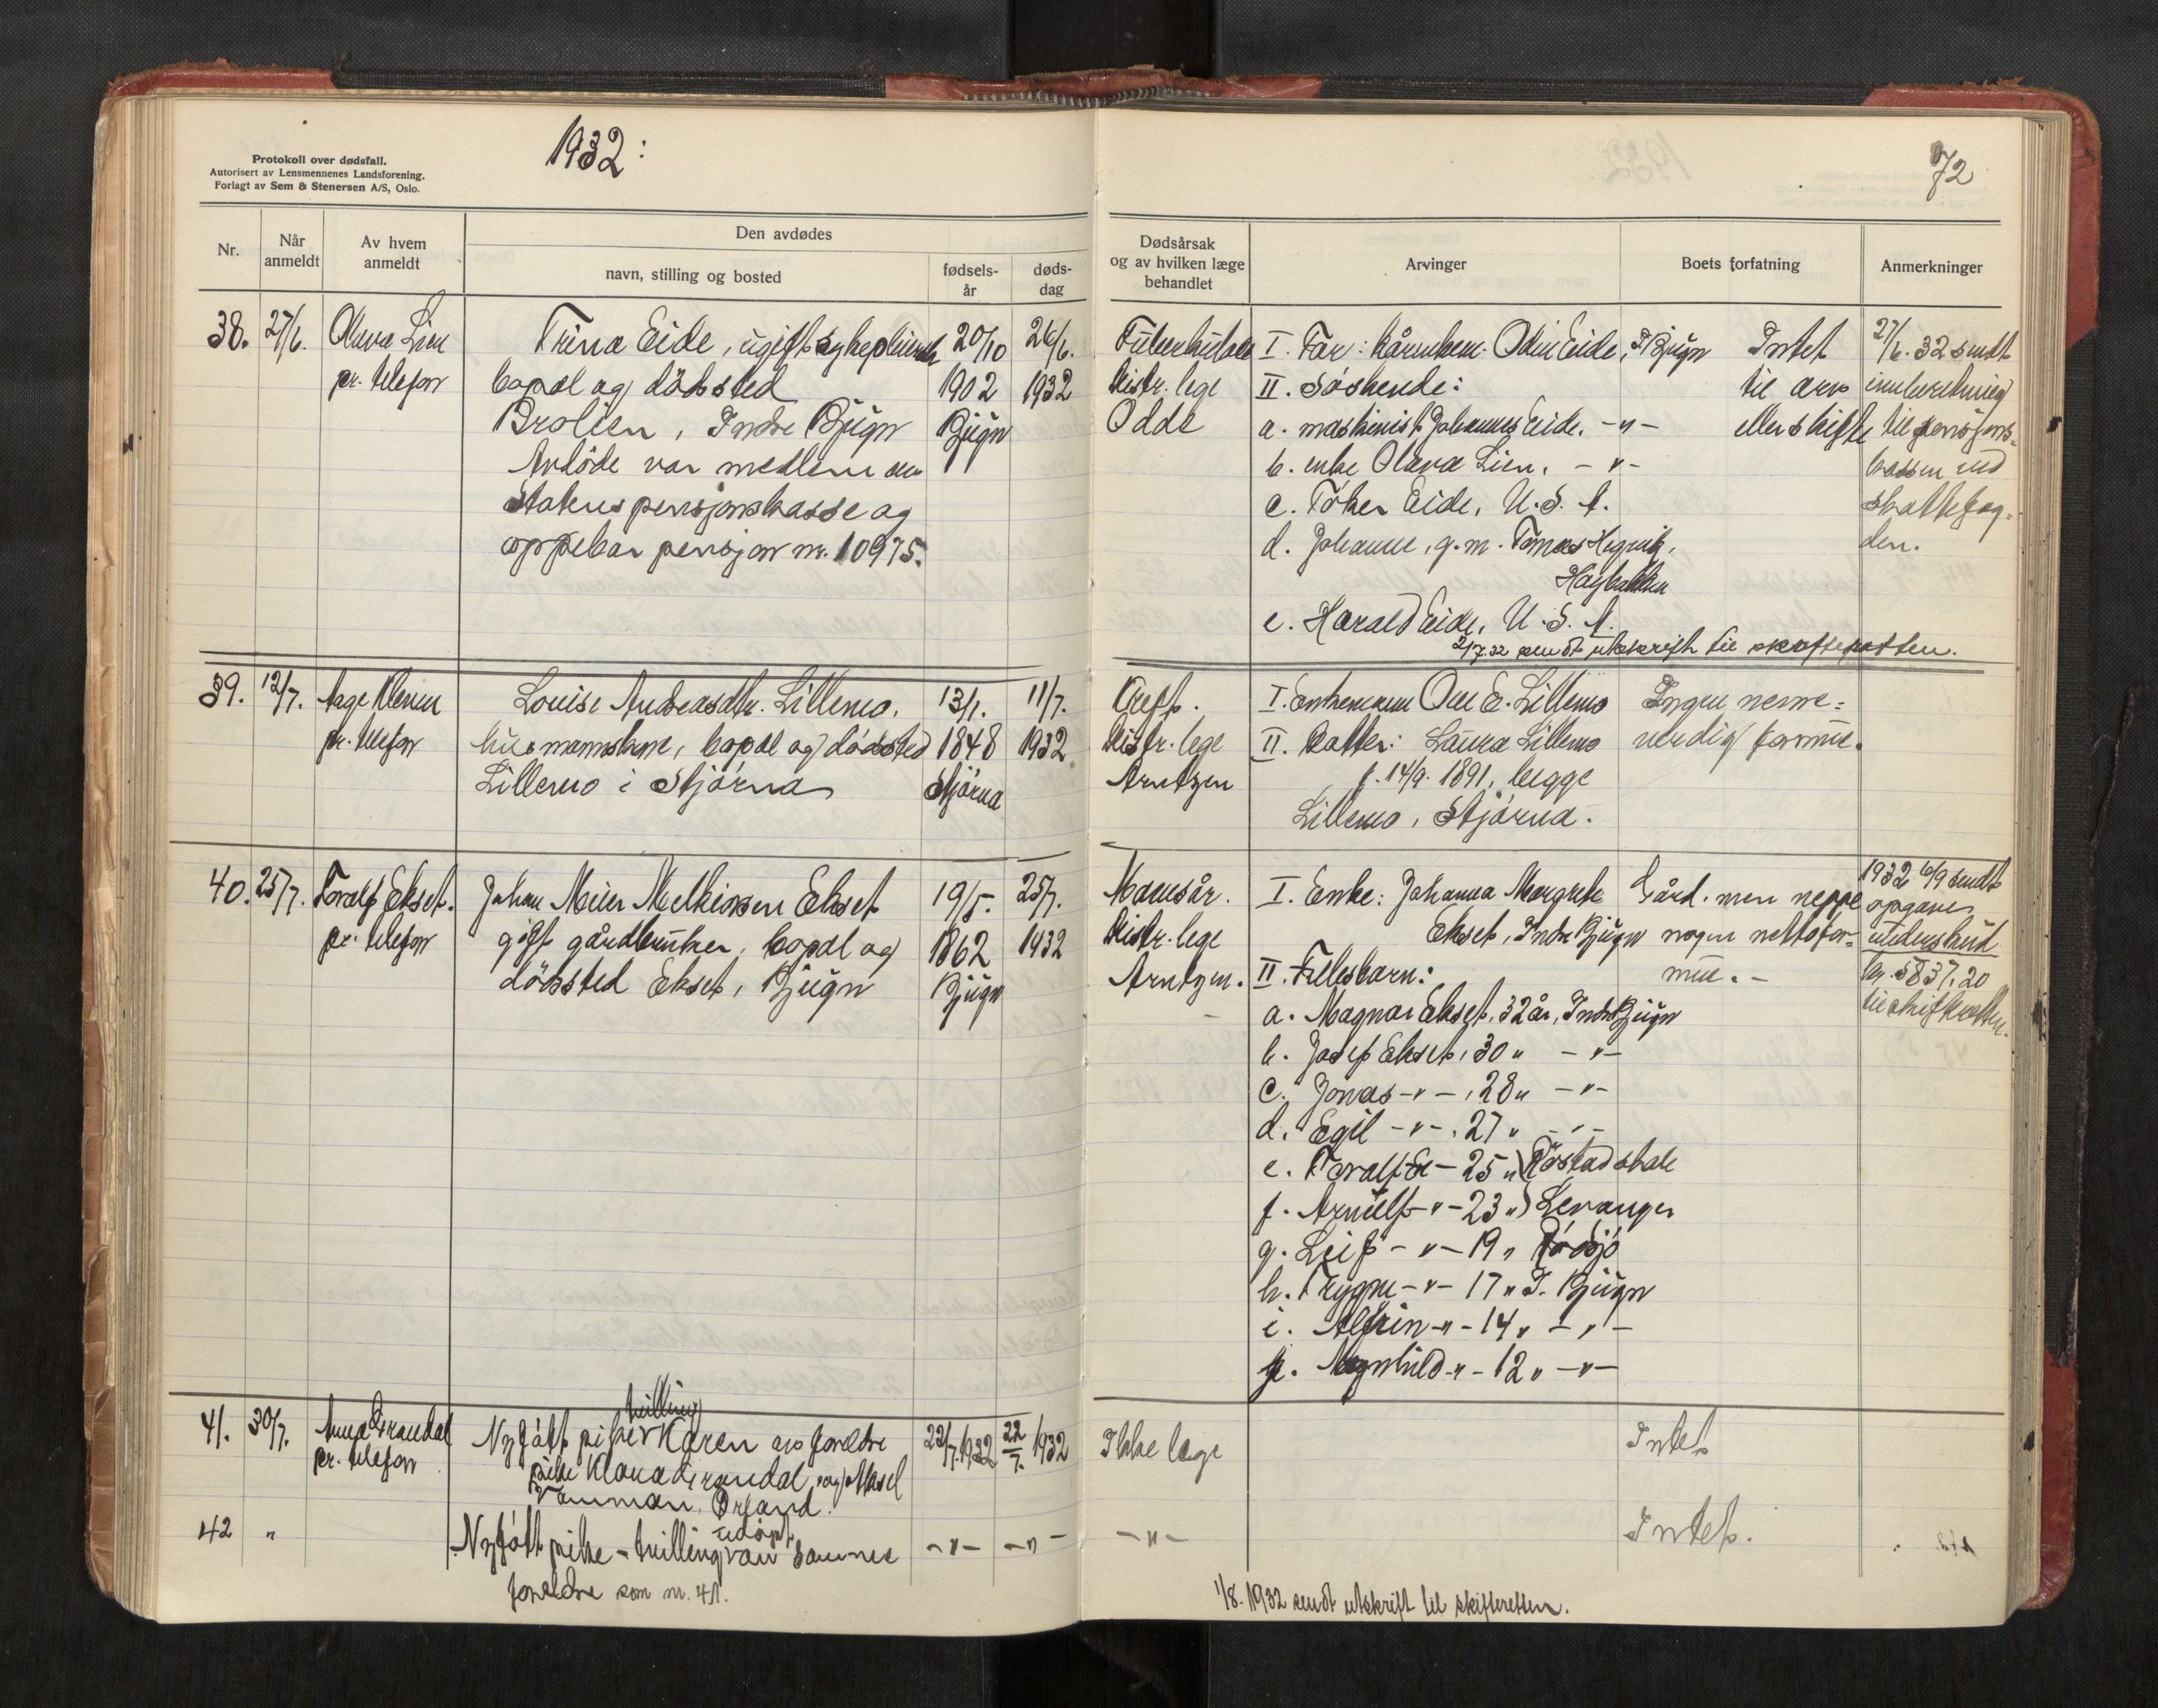 Protokoll over dødsfall.
Autorisert av Lensmennenes Landsforening.
Forlagt av Sem & Stenersen A/S, Oslo.
1932:
Nr.
Når anmeldt
Av hvem anmeldt
Den avdødes
navn, stilling og bosted
fødsels-
år
døds-
dag
38. 27/6. Olava Lien
pr. telefon
Trina Eide, ugift sykepleierske
bopel og dödssted
Brolien, Indre Bjugn
Avdöde var medlem av
Statens pensjonskasse og
oppebar pensjon nr. 10975.
20/10
1902
Bjugn
26/6.
1932
39. 12/7. Aage Kleven
pr. telefon
Louise Andreasdtr. Lillemo.
husmannskone, bopel og dödssted
Lillemo i Stjörna
13/1.
1848
Stjörna
11/7.
1932
40. 25/7. Toralf Ekset.
pr. telefon
Johan Meier Melkiorsen Ekset
gift gårdbruker, bopel og
dödssted Ekset, Bjugn
19/5.
1862
Bjugn
25/7.
1932
41. 30/7. Anna Grandal
pr. telefon
tvilling
Nyfödt pike Karen av foreldre
pike Klara Grandal og Aksel
Ørland.
22/7.1932
22/7. 1932
42 "
udöpt
Nyfödt pike-tvilling av samme
foreldre som nr. 41.
-"- -"-
72
Dødsårsak
og av hvilken læge
behandlet
Arvinger
Boets forfatning
Anmerkninger
Tuberkulose
Distr. lege
Odde
I. Far: Odin Eide, I. Bjugn
II. Söskende:
a. maskinist Johannes Eide. -"-
b. enke Olava Lien. -"-
c. Eide, U.S.A.
d. Johanne, g.m. Tomas
e. Harald Eide, U.S.A.
2/7.32 sendt utskrift til skifteretten.
Intet
til arv
eller skifte
27/6.32 sendt
innberetning
til pensjons-
kassen ved
skattefog-
den.
Distr. lege
Arntzen
I. Enkemann Ole E. Lillemo
II. Datter: Laura Lillemo
f. 14/9. 1891, begge
Lillemo, Stjörna.
Ingen nevne-
verdig formue.
Distr. lege
Arntzen.
I. Enke: Johanna Margrete
Ekset, Indre Bjugn
II. Fellesbarn:
a. Magnar Ekset, 32 år, Indre Bjugn
b. Josef Ekset, 30 " -"-
c. Jonas -"-, 28 " -"-
d. Egil -"-, 27 " -"-
e. Toralf -"- 25 ") Röstad skole
f. Arnulf -"- 23 ") Levanger
g. Leif -"- 19 "
h. Trygve -"- 17 " I. Bjugn
i. -"- 14 " -"-
j. Magnhild -"- 12 " -"-
Gård. men neppe
nogen nettofor-
mue. -
1932 10/9 sendt
opgave
underskud
kr. 5837.20
til skifteretten.
Ikke læge
Intet
-"-
Intet.
1/8. 1932 sendt utskrift til skifteretten.